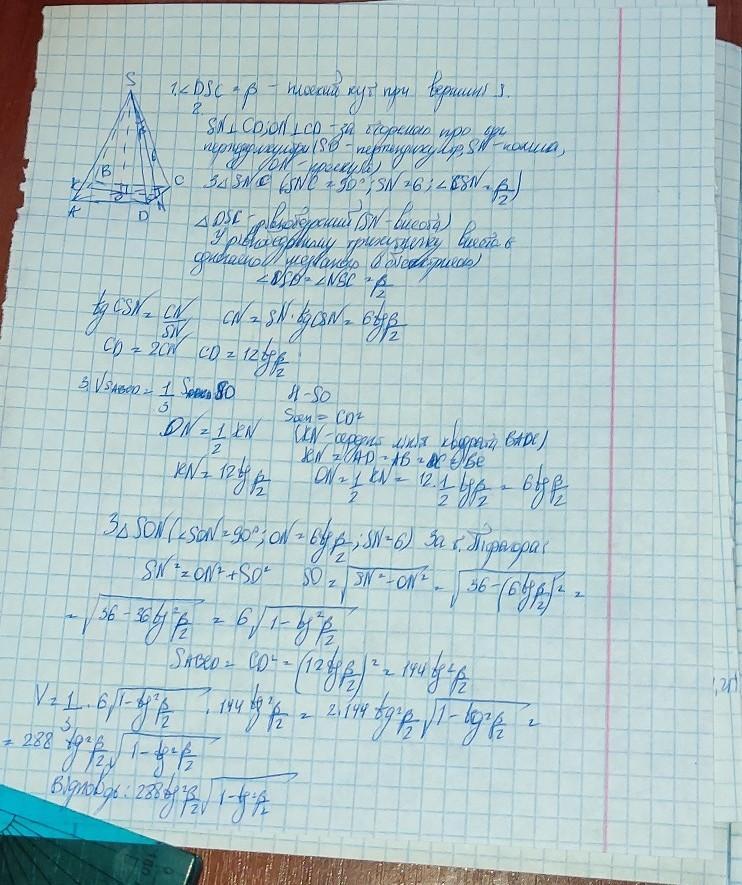 S
B
C
K
A
D
N
1. ∠DSC = β - плоский кут при вершині S.
2.
SN⊥CD; ON⊥CD - за теоремою про три
перпендикуляри (SO - перпендикуляр, SN - похила,
ON - проекція)
З △SNC (SNC = 90°; SN = 6; ∠CSN = β/2)
△DSC - рівнобедрений (SN - висота)
У рівнобедреному трикутнику висота є
медіаною і бісектрисою
∠NSC = β/2
tg CSN = CN/SN CN = SN · tg CSN = 6 tg β/2
CD = 2CN CD = 12 tg β/2
3. V SABCD = 1/3 S SO H - SO
S = CD²
ON = 1/2 KN (KN - середня лінія квадрата BADC)
KN = AD = AB = BC
KN = 12 tg β/2 ON = 1/2 KN = 12 · 1/2 tg β/2 = 6 tg β/2
З △SON (∠SON = 90°; ON = 6 tg β/2; SN = 6) За т. Піфагора:
SN² = ON² + SO² SO = √SN² - ON² = √36 - (6 tg β/2)² =
= √36 - 36 tg² β/2 = 6 √1 - tg² β/2
SABCD = CD² = (12 tg β/2)² = 144 tg² β/2
V = 1/3 · 6 √1 - tg² β/2 · 144 tg² β/2 = 2 · 144 tg² β/2 √1 - tg² β/2 =
= 288 tg² β/2 √1 - tg² β/2
Відповідь: 288 tg² β/2 √1 - tg² β/2